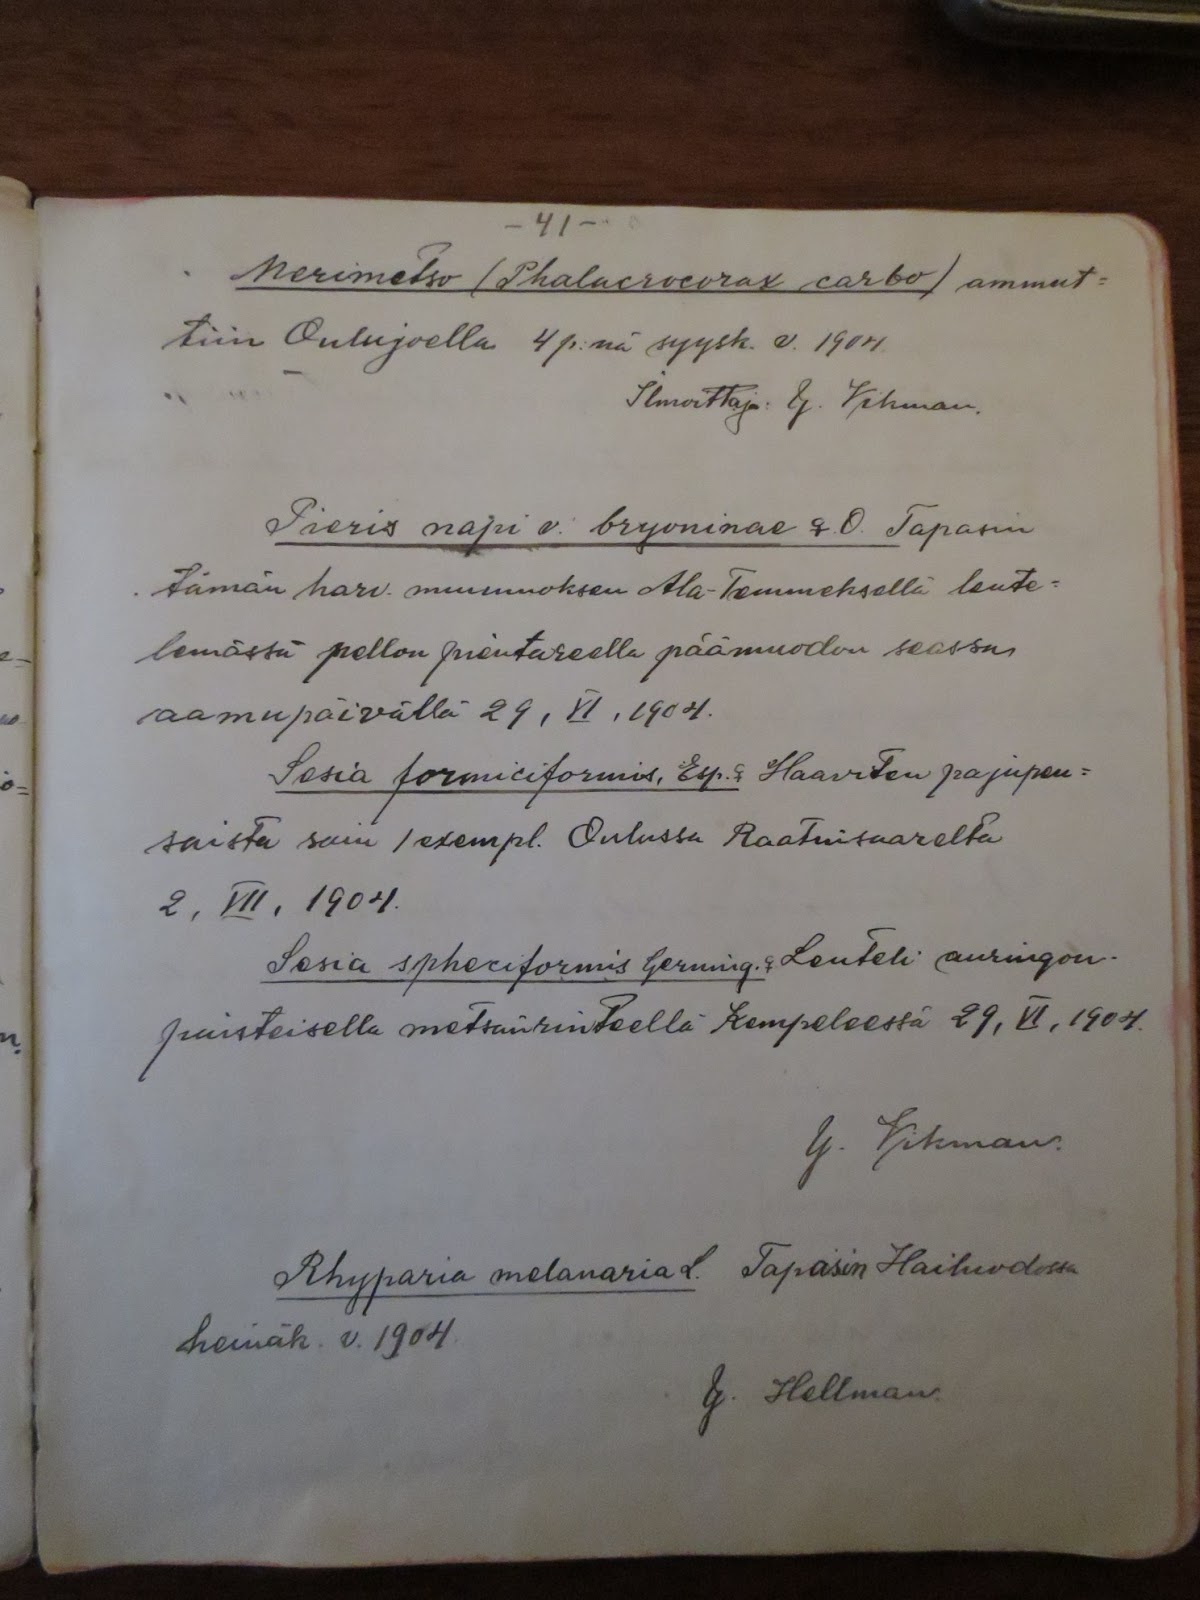 - 41 -
Merimetso (Phalacrocorax carbo) ammut=
tiin Oulujoella 4 p:nä syysk. v. 1904.
Ilmoittaja: Y. Vikman.
Pieris napi v. bryoninae ♀. O. Tapasin
tämän harv. muunnoksen Ala-Temmeksellä leute=
lemässä pellon pientareella päämuodon seassa
aamupäivällä 29, VI, 1904.
Sesia formiciformis, Esp. ♀ Haaviten pajupen=
saista sain 1 exempl. Oulussa Raatinsaarelta
2, VII, 1904.
Sesia spheciformis Gerning. ♀ Leuteli auringon-
paisteisella metsänrinteellä Kempeleessä 29, VI, 1904.
Y. Vikman.
Rhyparia melanaria L. Tapasin Hailuodossa
heinäk. v. 1904.
Y. Hellman.